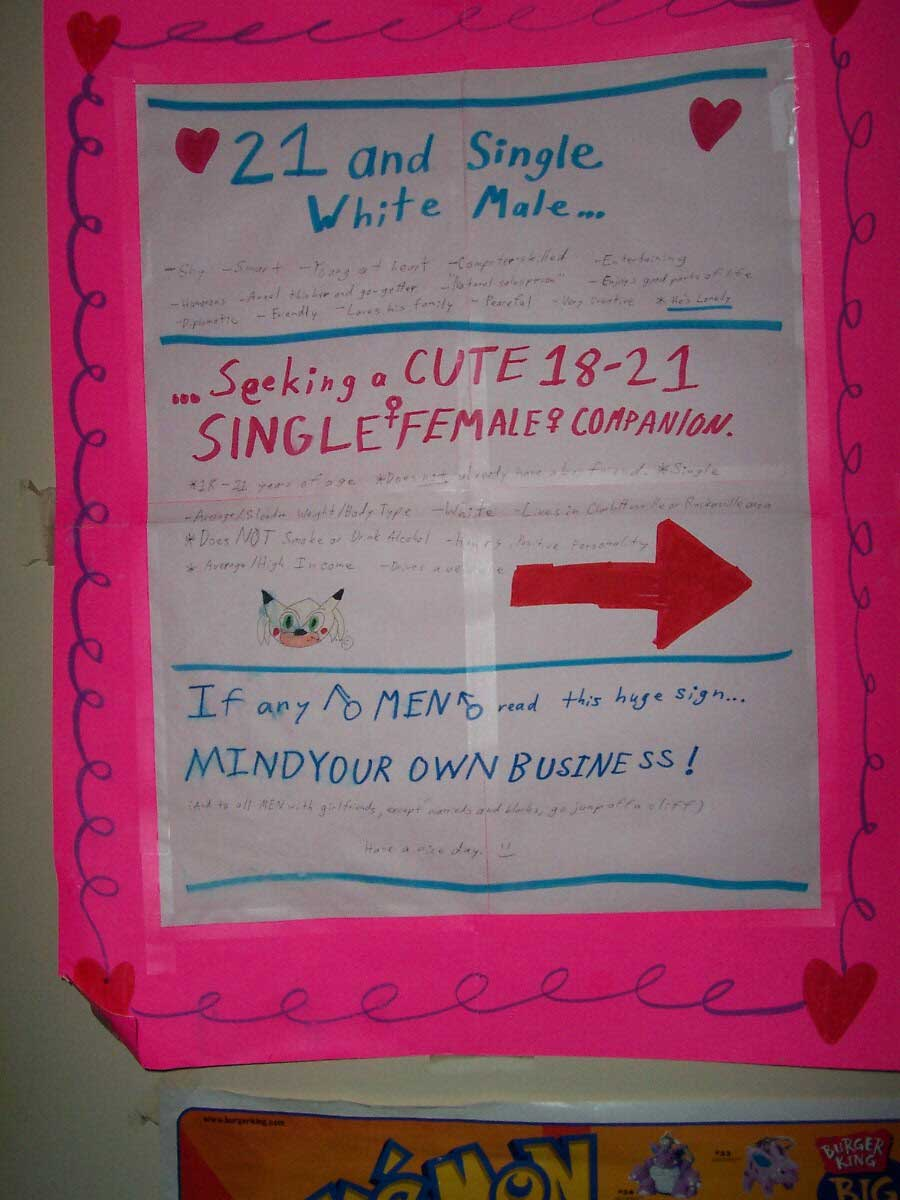 21 and Single
White Male...
-Shy -Smart -Young at heart -Computer skilled -Entertaining
-Humorous -Avid thinker and go-getter -"Natural salesperson" -Enjoys good parts of life
-Diplomatic -Friendly -Loves his family -Peaceful -Very Creative *He's Lonely
...Seeking a CUTE 18-21
SINGLE ♀FEMALE♀ COMPANION.
*18-21 years of age *Does not already have a boyfriend. *Single
-Average/Slender Weight/Body Type -White -Lives in Charlottesville or Ruckersville area
*Does NOT Smoke or Drink Alcohol Positive Personality
*Average/High Income -Drives a
If any ♂ MEN ♂ read this huge sign...
MIND YOUR OWN BUSINESS!
(And to all MEN with girlfriends, except and blacks, go jump off a cliff)
Have a nice day.
www.burgerking.com
POKéMON
#34
#33
BURGER
KING
BIG